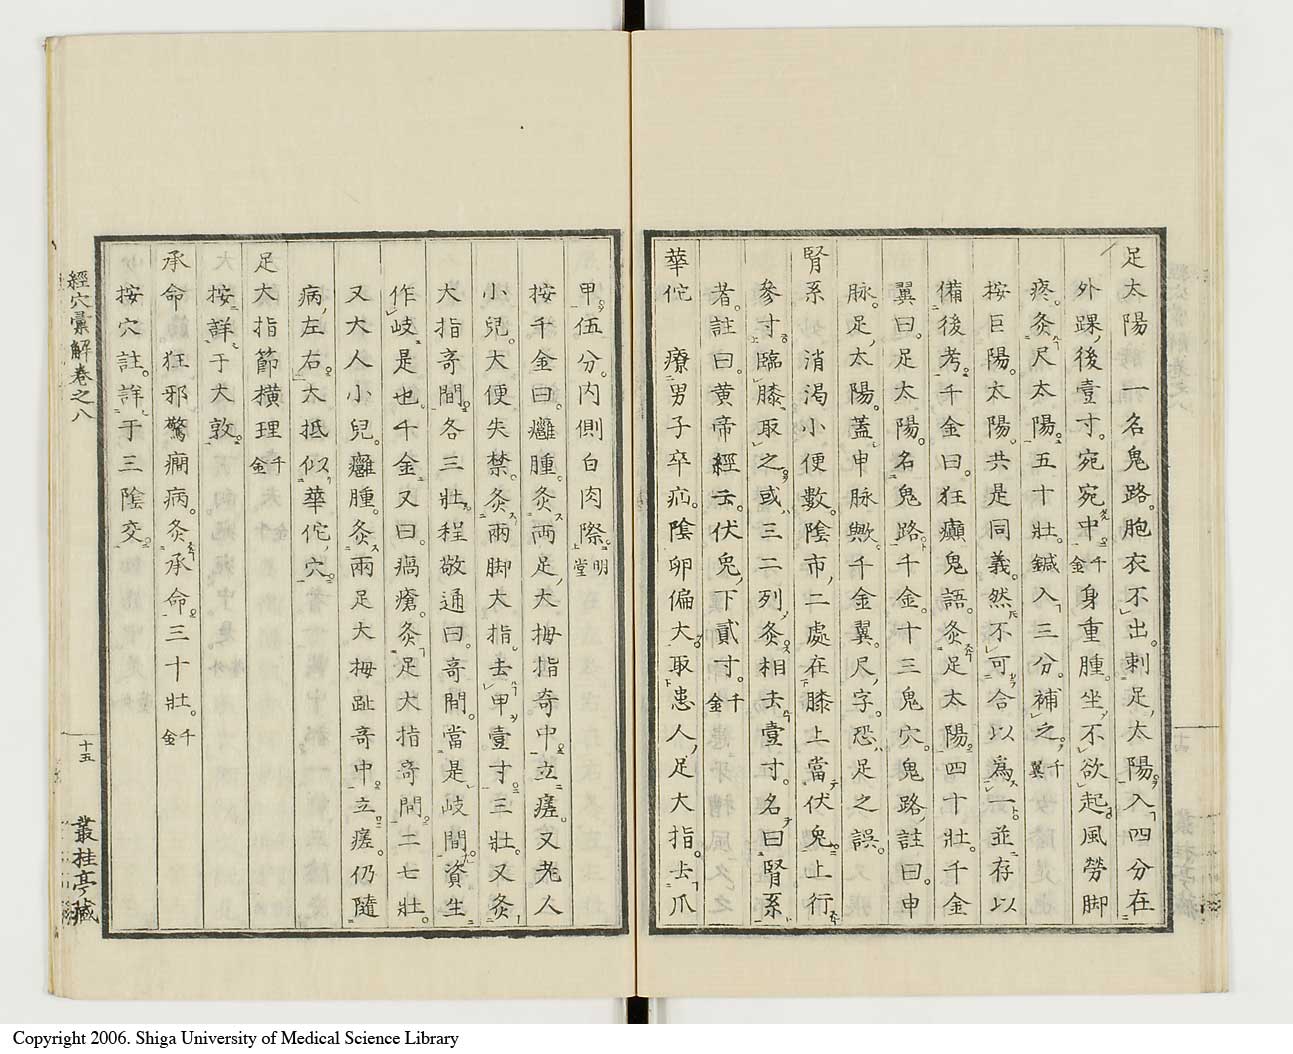 足太陽 一名鬼路。胞衣不出。刺足太陽入四分在
外踝後壹寸。宛宛中。千金身重腫。坐不欲起。風勞脚
疼。灸尺太陽。五十壯。鍼入三分。補之。千翼
按巨陽。太陽。共是同義。然不可合以爲一。並存以
備後考。千金曰。狂癲鬼語。灸足太陽四十壯。千金
翼曰。足太陽。名鬼路。千金。十三鬼穴。鬼路。註曰。申
脉。足太陽。蓋申脉歟。千金翼。尺字。恐足之誤。
腎系 消渴小便數。陰市二處。在膝上當伏兔上行
參寸。臨膝取之。或三二列灸。相去壹寸。名曰腎系
者。註曰。黃帝經云。伏兔下貳寸。千金
華佗 療男子卒疝。陰卵偏大。取患人足大指。去爪
甲。伍分。内側白肉際。明堂上
按千金曰。癰腫。灸兩足大拇指奇中。立瘥。又老人
小兒。大便失禁。灸兩脚大指。去甲壹寸。三壯。又灸
大指奇間。各三壯。程敬通曰。奇間。當是岐間。資生
作岐。是也。千金又曰。瘑瘡。灸足大指奇間。二七壯。
又大人小兒。癰腫。灸兩足大拇趾奇中。立瘥。仍隨
病。左右。大抵似華佗穴。
足大指節横理 千金
按詳于大敦。
承命 狂邪驚癇病。灸承命。三十壯。千金
按穴註。詳于三陰交。
經穴彙解卷之八
十五
叢桂亭藏
Copyright 2006. Shiga University of Medical Science Library